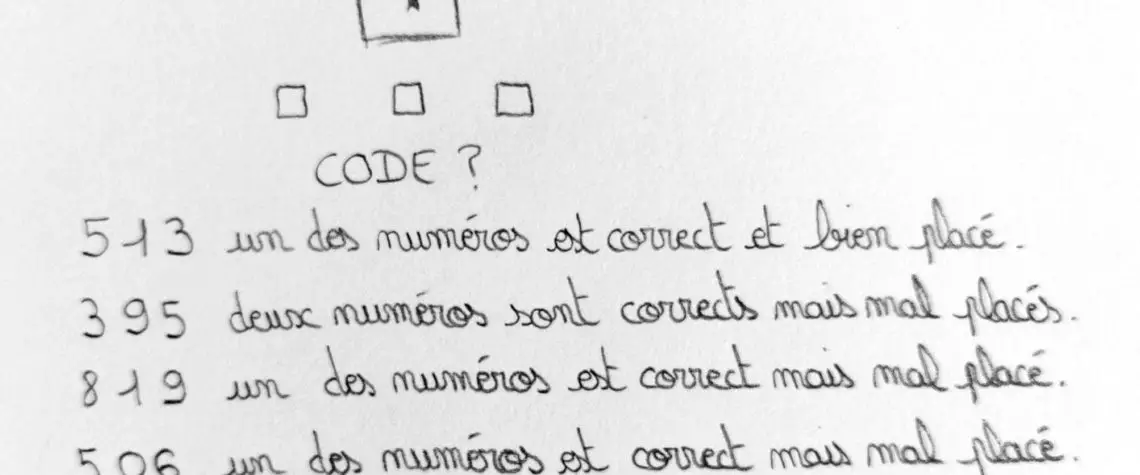 CODE ?
513 un des numéros est correct et bien placé.
395 deux numéros sont corrects mais mal placés.
819 un des numéros est correct mais mal placé.
506 un des numéros est correct mais mal placé.